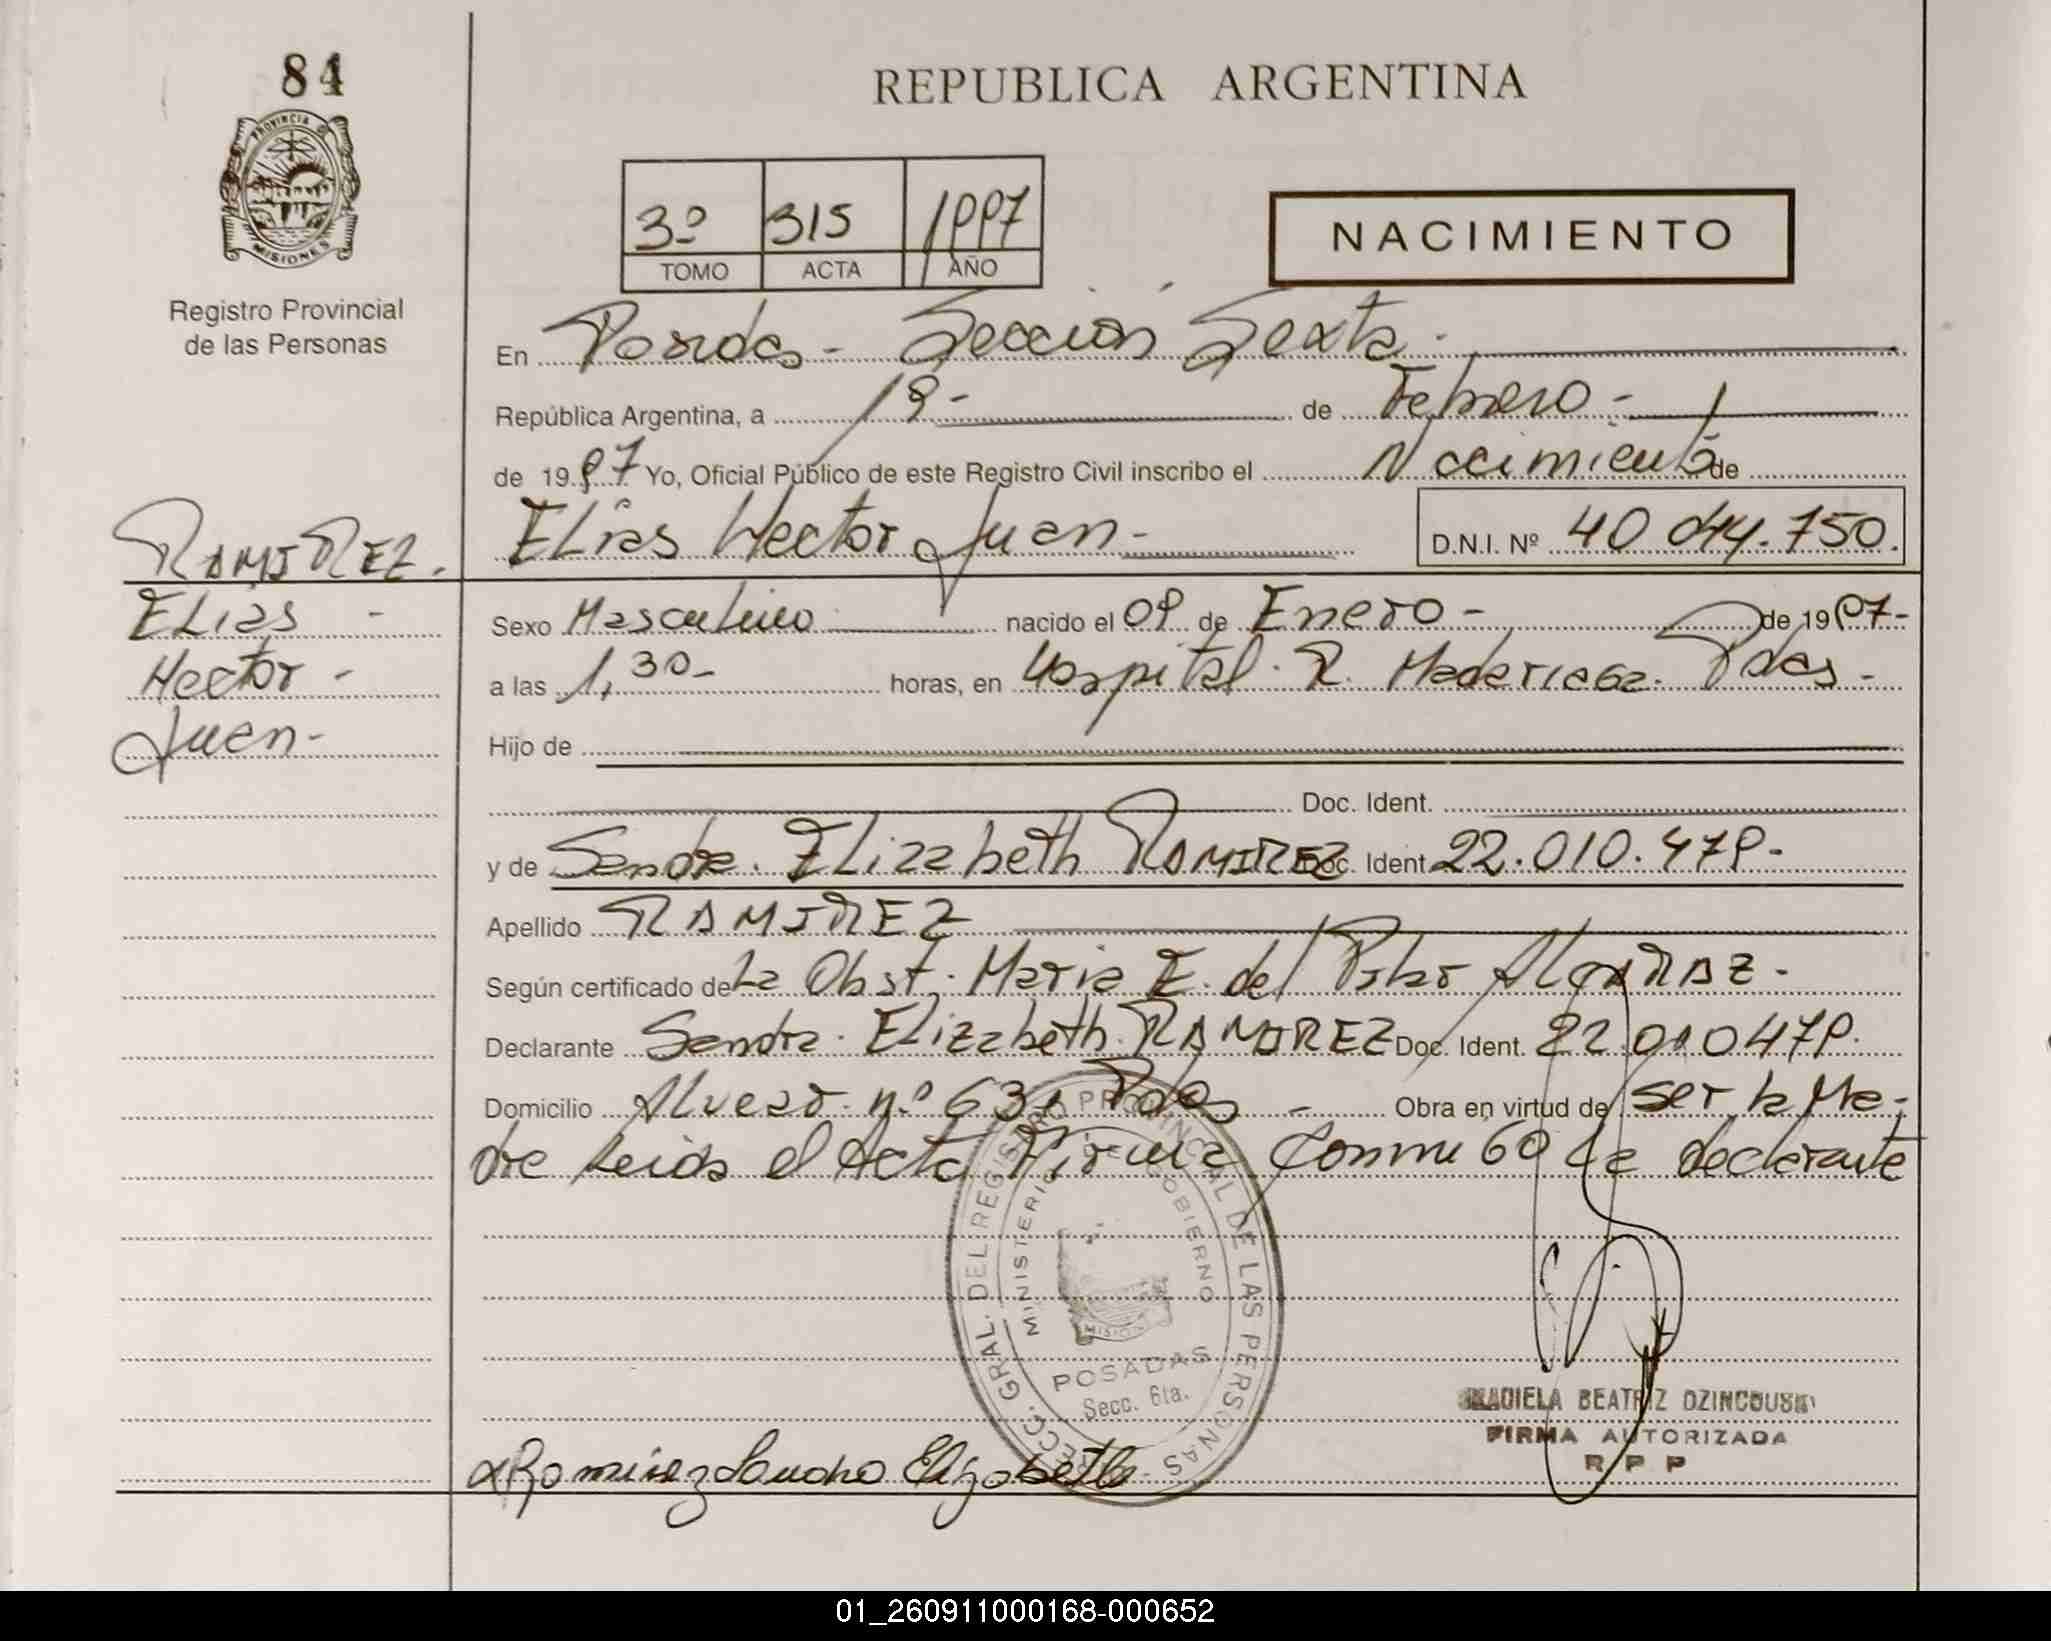 84
REPUBLICA ARGENTINA
PROVINCIA DE
MISIONES
Registro Provincial
de las Personas
3º 315 1997
TOMO ACTA AÑO
NACIMIENTO
En Posadas - Sección Sexta -
República Argentina, a 19 - de Febrero -
de 1997 Yo, Oficial Público de este Registro Civil inscribo el Nacimiento de
Elias Hector Juan - D.N.I. Nº 40 044.750.
RAMIREZ.
Elias -
Hector -
Juan -
Sexo Masculino nacido el 09 de Enero - de 1997-
a las 1,30- horas, en Hospital. R. Madariaga. Pdas -
Hijo de
Doc. Ident.
y de Sandra. Elizabeth RAMIREZ Doc. Ident 22.010.479-
Apellido RAMIREZ
Según certificado de La Obst. Maria E. del Pilar
Declarante Sandra. Elizabeth. RAMIREZ Doc. Ident. 22.010479.
Domicilio Alvear. nº 631 Pdas - Obra en virtud de ser la Ma-
dre Leida el Acta Firma Conmigo La declarante
DIRECC. GRAL. DEL REGISTRO PROVINCIAL DE LAS PERSONAS
MINISTERIO DE GOBIERNO
MISIONES
POSADAS
Secc. 6ta.
BEATRIZ
FIRMA AUTORIZADA
R P P
Ramirez Sandra Elizabeth
01_260911000168-000652